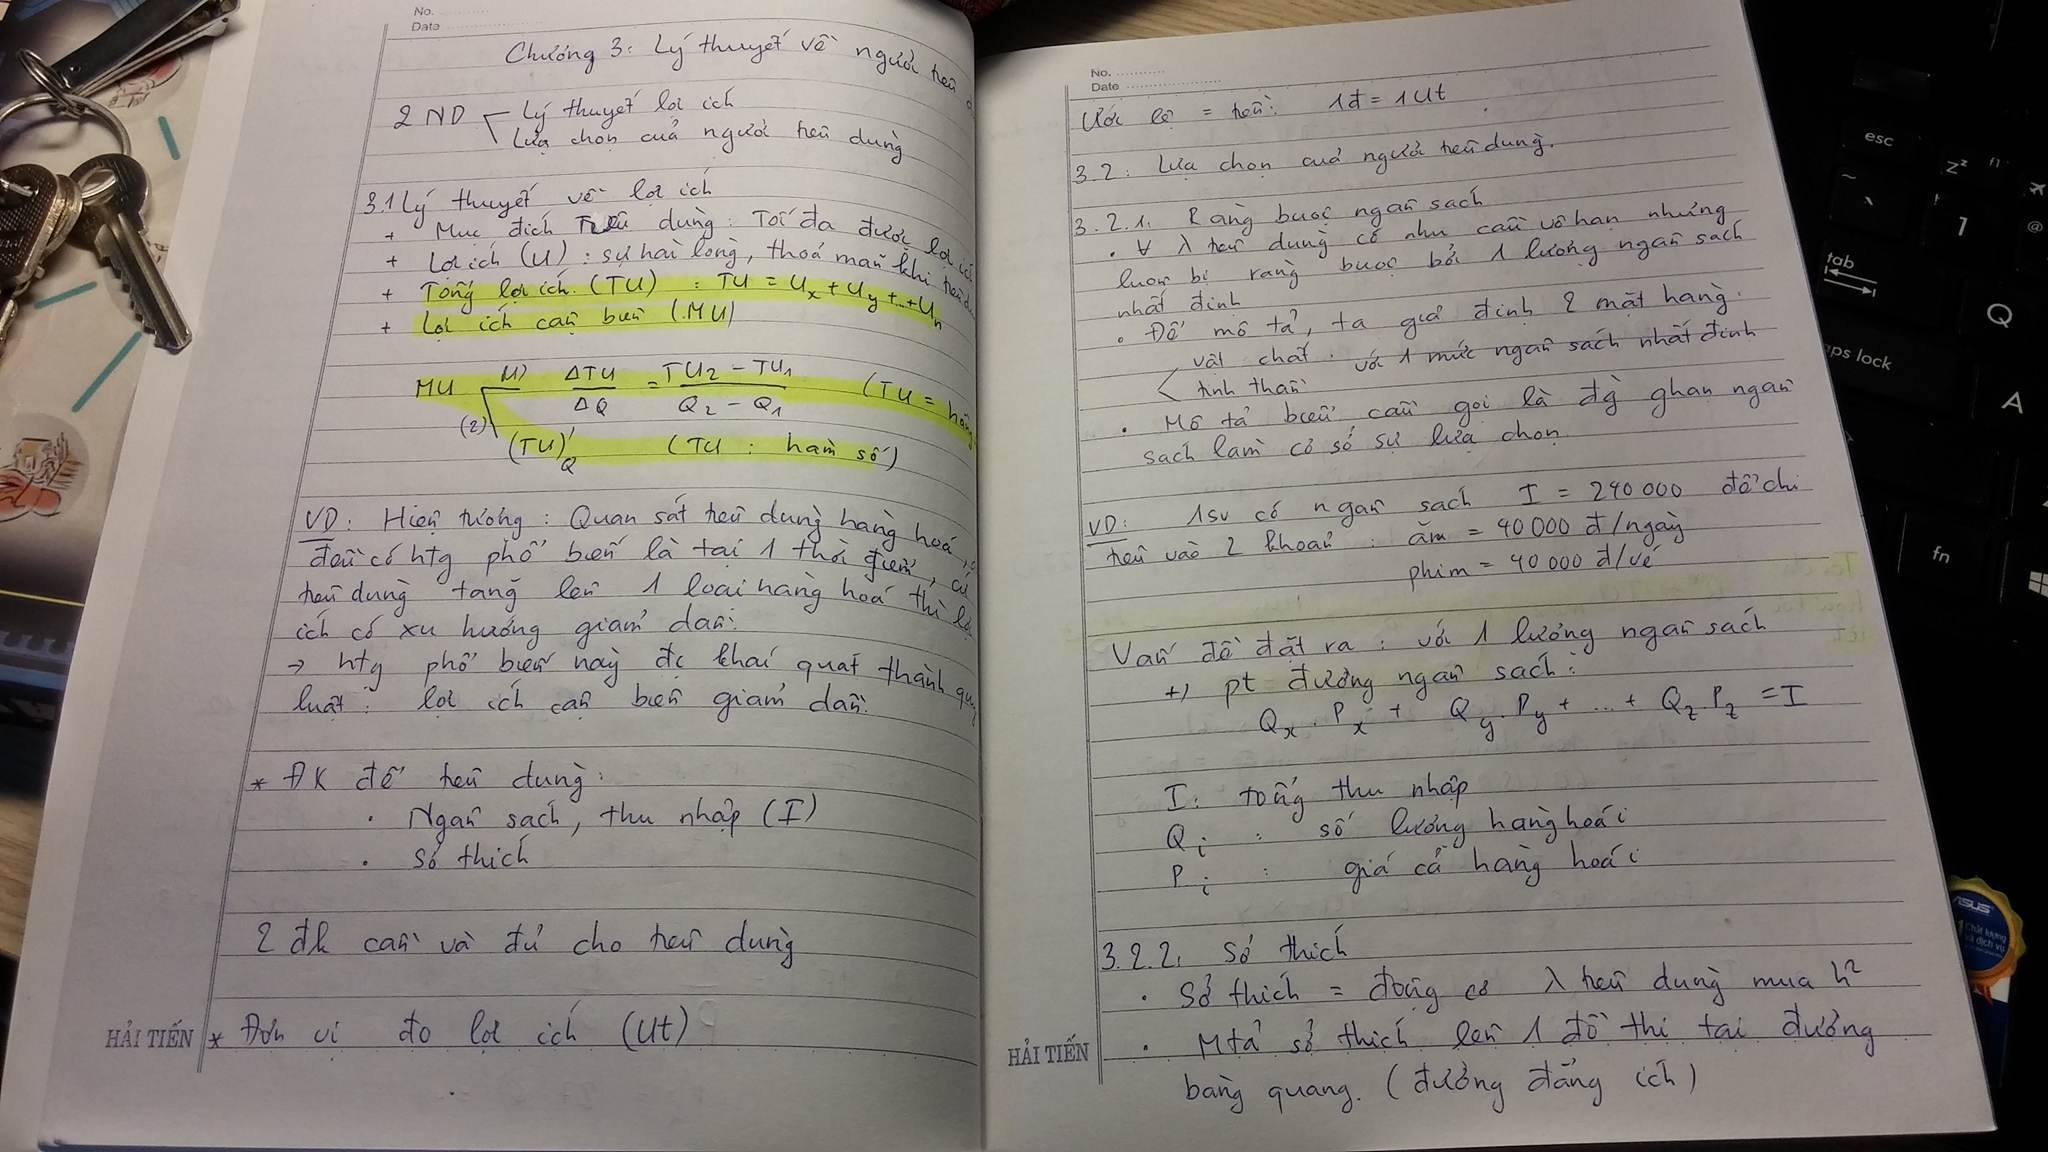 No.
Date
Chương 3: Lý thuyết về người tiêu
2 ND
Lý thuyết lợi ích
Lựa chọn của người tiêu dùng
3.1 Lý thuyết về lợi ích
+ Mục đích Tiêu dùng: Tối đa được lợi ích
+ Lợi ích (U): sự hài lòng, thoả mãn khi tiêu d
+ Tổng lợi ích (TU) : TU = Ux + Uy + ... + Un
+ Lợi ích cận biên (MU)
MU (1) ΔTU / ΔQ = TU2 - TU1 / Q2 - Q1 (TU = hằng
(2) (TU)'Q (TU : hàm số)
VD: Hiện tượng: Quan sát tiêu dùng hàng hoá,
đều có htg phổ biến là tại 1 thời điểm, cứ
tiêu dùng tăng lên 1 loại hàng hoá thì lợi
ích có xu hướng giảm dần.
→ htg phổ biến này đc khái quát thành quy
luật: lợi ích cận biên giảm dần.
* ĐK để tiêu dùng:
• Ngân sách, thu nhập (I)
• Sở thích
2 đk cần và đủ cho tiêu dùng
* Đơn vị đo lợi ích (Ut)
HẢI TIẾN
No.
Date
Ước lệ = tiền: 1đ = 1Ut
3.2: Lựa chọn của người tiêu dùng.
3.2.1. Ràng buộc ngân sách
• ∀ λ tiêu dùng có nhu cầu vô hạn nhưng
luôn bị ràng buộc bởi 1 lượng ngân sách
nhất định
• Để mô tả, ta giả định 2 mặt hàng.
vật chất
tinh thần
với 1 mức ngân sách nhất định
• Mô tả biểu cầu gọi là đg ghạn ngân
sách làm cơ sở sự lựa chọn
VD: 1sv có ngân sách I = 240 000 để chi
tiêu vào 2 khoản: ăn = 40 000 đ/ngày
phim = 40 000 đ/vé
Vấn đề đặt ra: với 1 lượng ngân sách
+) pt đường ngân sách:
Qx.Px + Qy.Py + ... + Qz.Pz = I
I: tổng thu nhập
Qi : số lượng hàng hoá i
Pi : giá cả hàng hoá i
3.2.2. Sở thích
• Sở thích = động cơ λ tiêu dùng mua h²
• Mtả sở thích lên 1 đồ thị tại đường
bàng quang. (đường đẳng ích)
HẢI TIẾN
esc
tab
caps lock
fn
Q
A
1
ASUS
Chất lượng
và dịch vụ